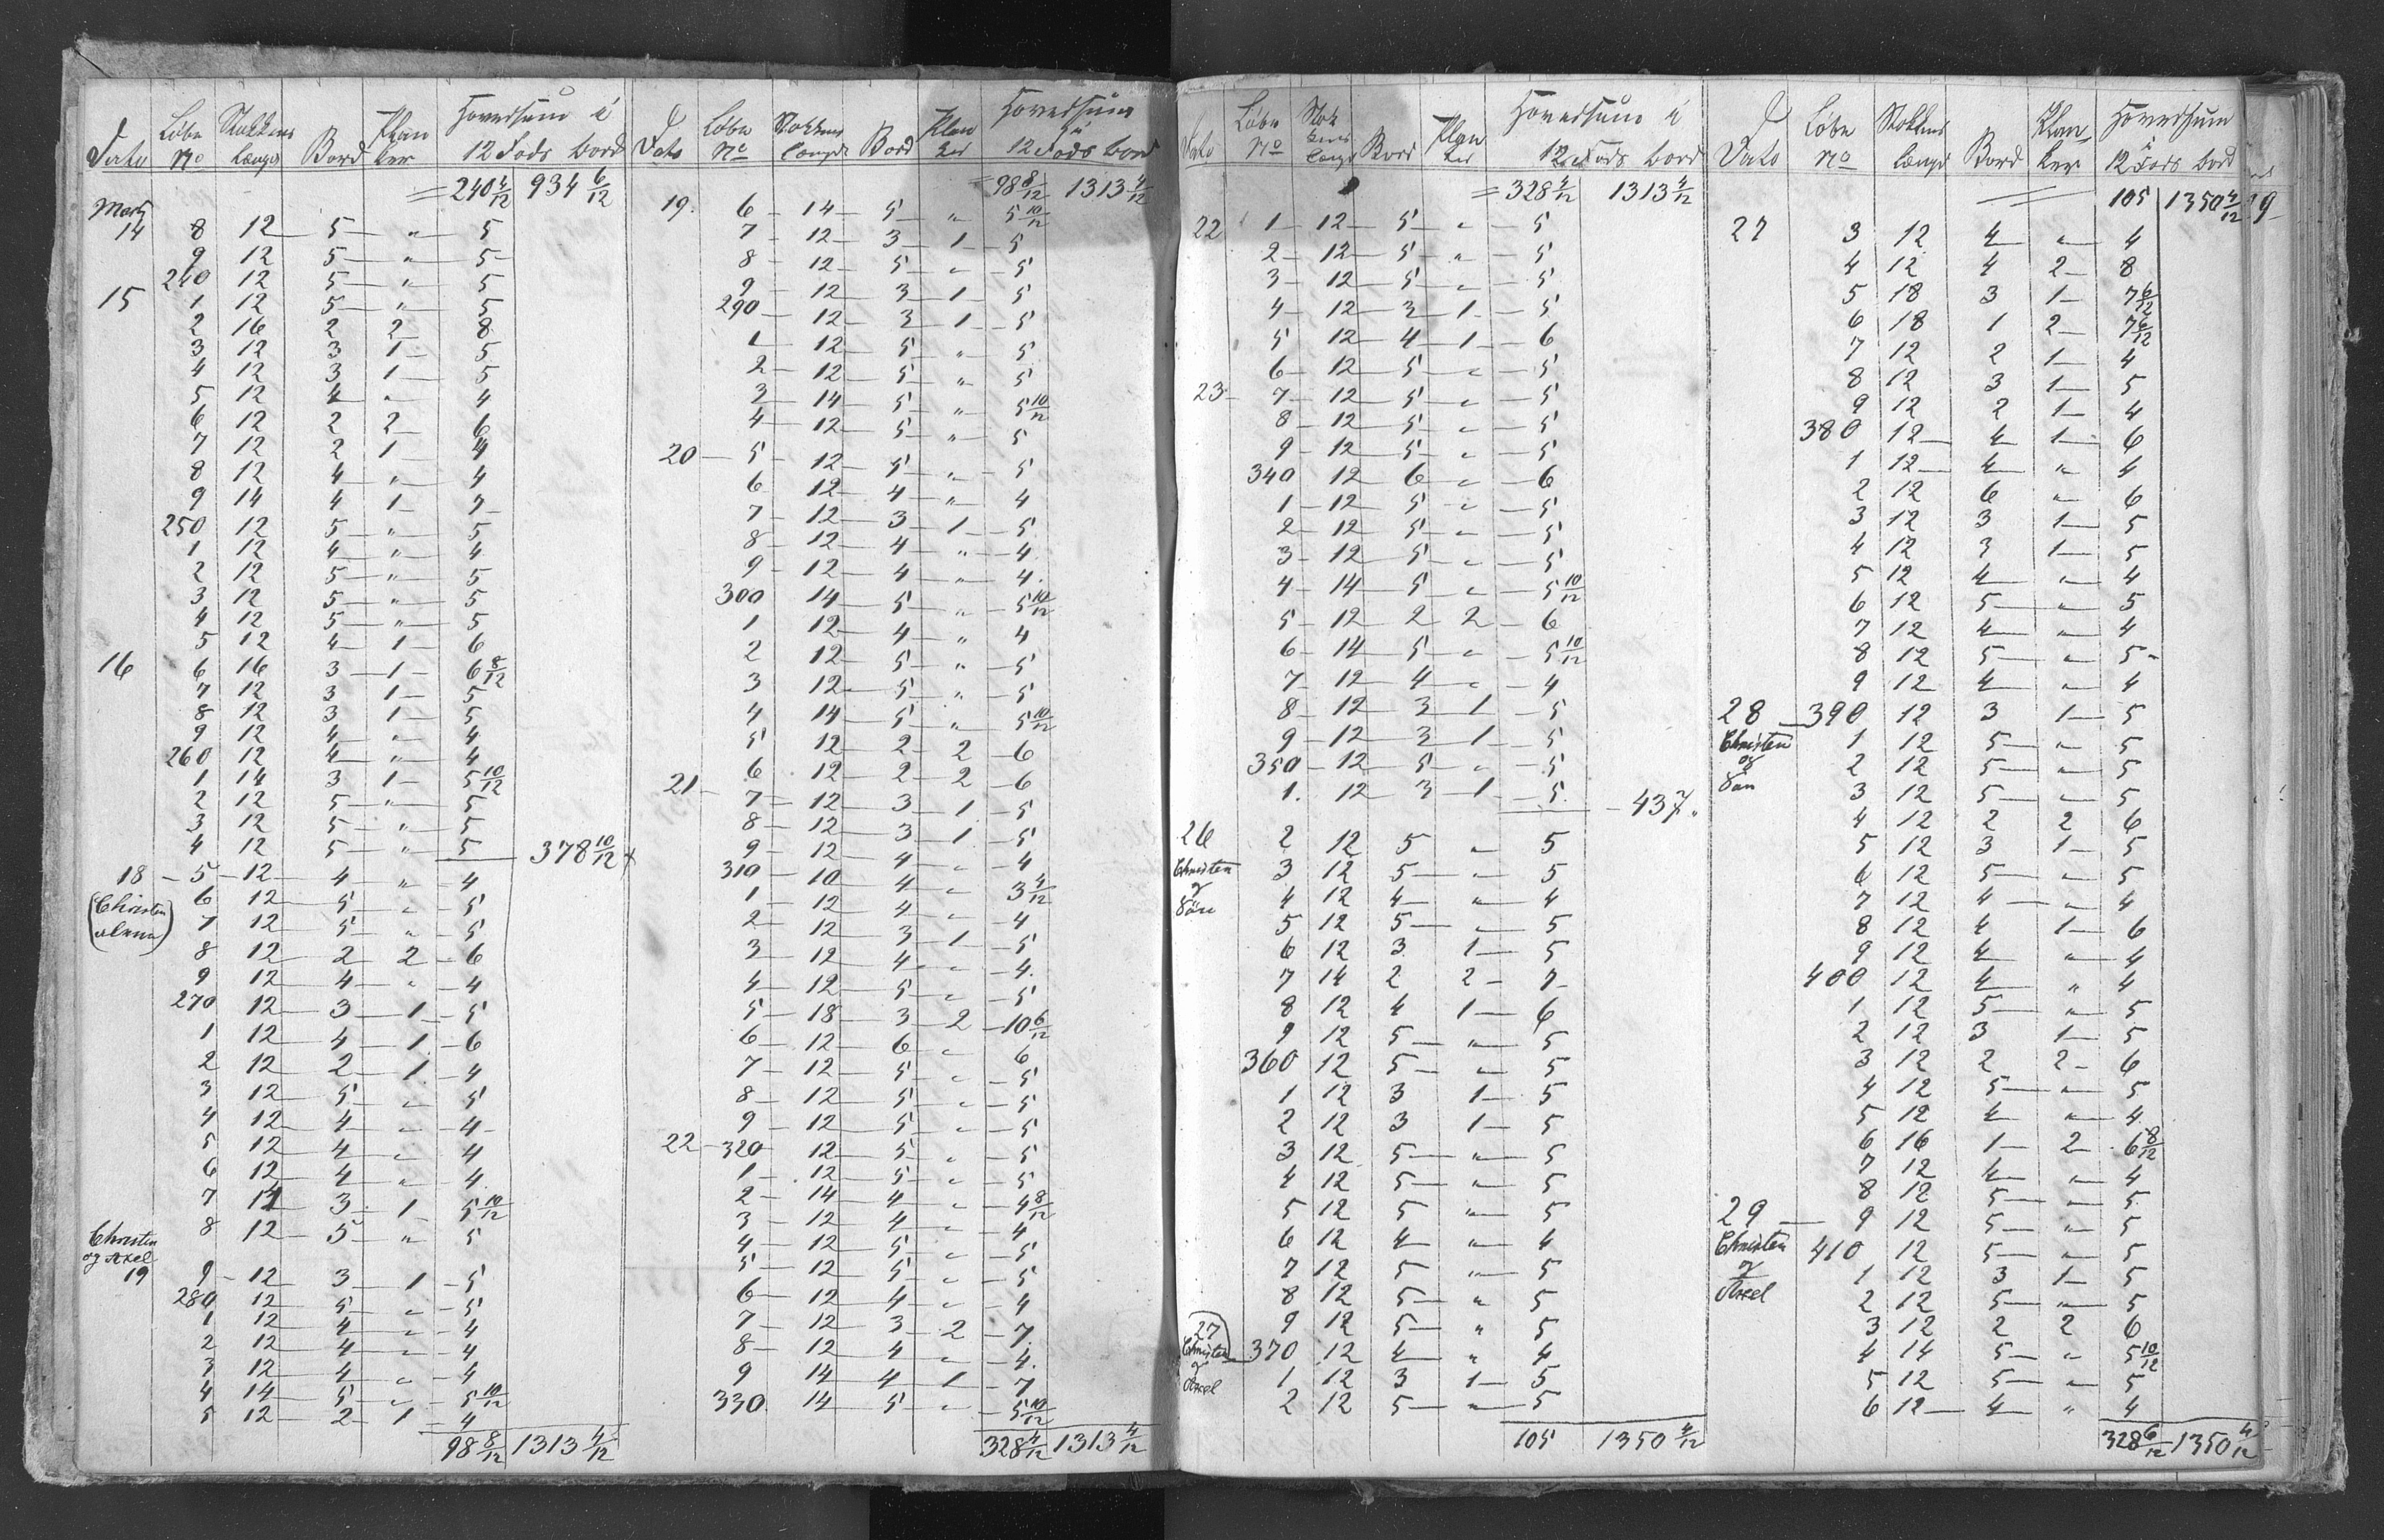 Dato Løbe No Stokkens Længd Bord Plan ker Hovedsum i 12 Fods bord
= 240 4/12 934 6/12
Marts
14 8 12 5 " 5
9 12 5 " 5
240 12 5 " 5
15 1 12 5 " 5
2 16 2 2 8
3 12 3 1 5
4 12 3 1 5
5 12 4 " 4
6 12 2 2 6
7 12 2 1 4
8 12 4 " 4
9 14 4 1 7
250 12 5 " 5
1 12 4 " 4
2 12 5 " 5
3 12 5 " 5
4 12 5 " 5
5 12 4 1 6
16 6 16 3 1 6 8/12
7 12 3 1 5
8 12 3 1 5
9 12 4 " 4
260 12 4 " 4
1 14 3 1 5 10/12
2 12 5 " 5
3 12 5 " 5
4 12 5 " 5 378 10/12
18 5 12 4 " 4
(Christen 6 12 5 " 5
alene) 7 12 5 " 5
8 12 2 2 6
9 12 4 " 4
270 12 3 1 5
1 12 4 1 6
2 12 2 1 4
3 12 5 " 5
4 12 4 " 4
5 12 4 " 4
6 12 4 " 4
7 14 3 1 5 10/12
Christen 8 12 5 " 5
og Axel
19 9 12 3 1 5
280 12 5 " 5
1 12 4 " 4
2 12 4 " 4
3 12 4 " 4
4 14 5 " 5 10/12
5 12 2 1 4
98 8/12 1313 4/12
Dato Løbe No Stokkens Længde Bord Plan ker Hovedsum i 12 Fods bord
= 98 8/12 1313 4/12
19 6 14 5 " 5 10/12
7 12 3 1 5
8 12 5 " 5
9 12 3 1 5
290 12 3 1 5
1 12 5 " 5
2 12 5 " 5
3 14 5 " 5 10/12
4 12 5 " 5
20 5 12 5 " 5
6 12 4 " 4
7 12 3 1 5
8 12 4 " 4
9 12 4 " 4
300 14 5 " 5 10/12
1 12 4 " 4
2 12 5 " 5
3 12 5 " 5
4 14 5 " 5 10/12
5 12 2 2 6
6 12 2 2 6
21 7 12 3 1 5
8 12 3 1 5
9 12 4 " 4
310 10 4 " 3 4/12
1 12 4 " 4
2 12 3 1 5
3 12 4 " 4
4 12 5 " 5
5 18 3 2 10 6/12
6 12 6 " 6
7 12 5 " 5
8 12 5 " 5
9 12 5 " 5
22 320 12 5 " 5
1 12 5 " 5
2 14 4 " 4 8/12
3 12 4 " 4
4 12 5 " 5
5 12 5 " 5
6 12 4 " 4
7 12 3 2 7
8 12 4 " 4
9 14 4 1 7
330 14 5 " 5 10/12
328 4/12 1313 4/12
Dato Løbe No Stok kens længd Bord Plan ker Hovedsum i 12 Fods bord
= 328 4/12 1313 4/12
22 1 12 5 " 5
2 12 5 " 5
3 12 5 " 5
4 12 3 1 5
5 12 4 1 6
6 12 5 " 5
23 7 12 5 " 5
8 12 5 " 5
9 12 5 " 5
340 12 6 " 6
1 12 5 " 5
2 12 5 " 5
3 12 5 " 5
4 14 5 " 5 10/12
5 12 2 2 6
6 14 5 " 5 10/12
7 12 4 " 4
8 12 3 1 5
9 12 3 1 5
350 12 5 " 5
1 12 3 1 5
437
26 2 12 5 " 5
Christen 3 12 5 " 5
og 4 12 4 " 4
Søn 5 12 5 " 5
6 12 3 1 5
7 14 2 2 7
8 12 4 1 6
9 12 5 " 5
360 12 5 " 5
1 12 3 1 5
2 12 3 1 5
3 12 5 " 5
4 12 5 " 5
5 12 5 " 5
6 12 4 " 4
7 12 5 " 5
8 12 5 " 5
27 9 12 5 " 5
Christen 370 12 4 " 4
og 1 12 3 1 5
Axel 2 12 5 " 5
105 1350 4/12
Dato Løbe No Stokkens længd Bord Plan ker Hovedsum i 12 Fods bord
105 1350 4/12
27 3 12 4 " 4
4 12 4 2 8
5 18 3 1 7 6/12
6 18 1 2 7 6/12
7 12 2 1 4
8 12 3 1 5
9 12 2 1 4
380 12 4 1 6
1 12 4 " 4
2 12 6 " 6
3 12 3 1 5
4 12 3 1 5
5 12 4 " 4
6 12 5 " 5
7 12 4 " 4
8 12 5 " 5
9 12 4 " 4
28 390 12 3 1 5
Christen 1 12 5 " 5
og 2 12 5 " 5
Søn 3 12 5 " 5
4 12 2 2 6
5 12 3 1 5
6 12 5 " 5
7 12 4 " 4
8 12 4 1 6
9 12 4 " 4
400 12 4 " 4
1 12 5 " 5
2 12 3 1 5
3 12 2 2 6
4 12 5 " 5
5 12 4 " 4
6 16 1 2 6 8/12
7 12 4 " 4
8 12 5 " 5
29 9 12 5 " 5
Christen 410 12 5 " 5
og 1 12 3 1 5
Axel 2 12 5 " 5
3 12 2 2 6
4 14 5 " 5 10/12
5 12 5 " 5
6 12 4 " 4
328 6/12 1350 4/12